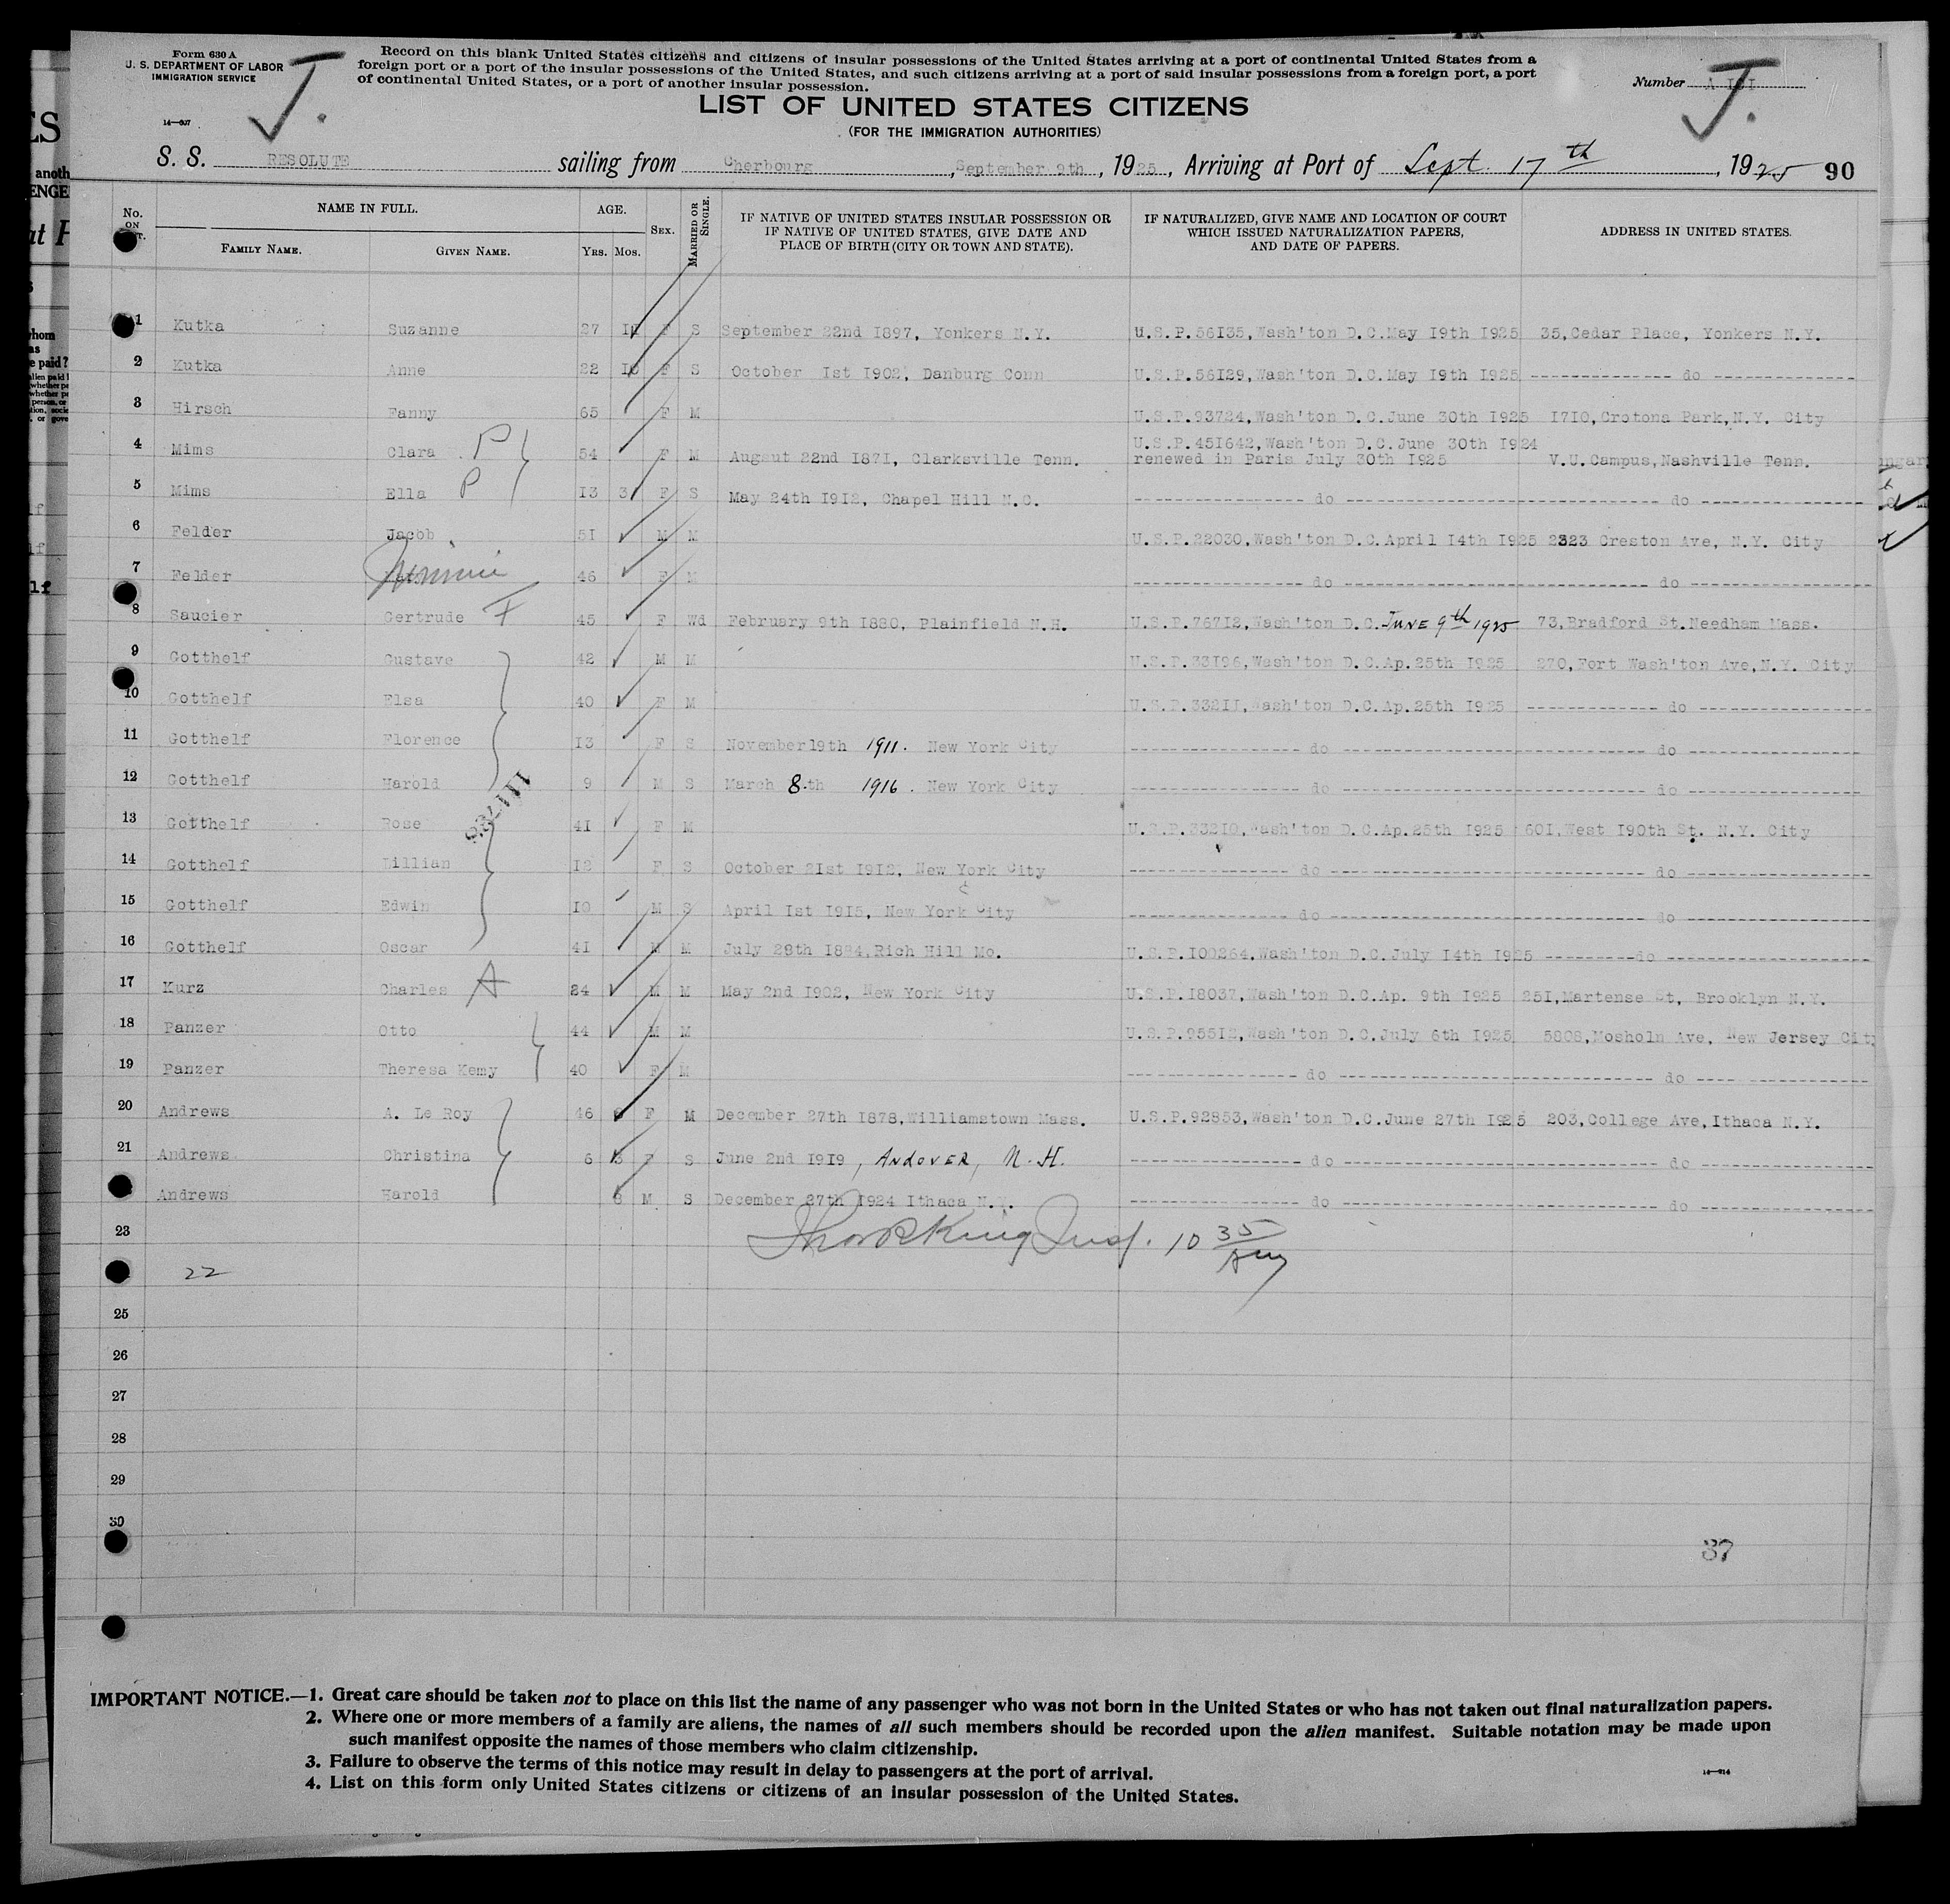 Form 630 A
U. S. DEPARTMENT OF LABOR
IMMIGRATION SERVICE
14—607
J.
Record on this blank United States citizens and citizens of insular possessions of the United States arriving at a port of continental United States from a
foreign port or a port of the insular possessions of the United States, and such citizens arriving at a port of said insular possessions from a foreign port, a port
of continental United States, or a port of another insular possession.
Number
J.
LIST OF UNITED STATES CITIZENS
(FOR THE IMMIGRATION AUTHORITIES)
S. S. RESOLUTE sailing from Cherbourg, September 9th, 1925, Arriving at Port of Sept. 17th, 1925 90
No. ON NAME IN FULL. AGE. SEX. MARRIED OR SINGLE. IF NATIVE OF UNITED STATES INSULAR POSSESSION OR IF NATIVE OF UNITED STATES, GIVE DATE AND PLACE OF BIRTH (CITY OR TOWN AND STATE). IF NATURALIZED, GIVE NAME AND LOCATION OF COURT WHICH ISSUED NATURALIZATION PAPERS, AND DATE OF PAPERS. ADDRESS IN UNITED STATES.
FAMILY NAME. GIVEN NAME. YRS. MOS.
1 Kutka Suzanne 27 11 F S September 22nd 1897, Yonkers N.Y. U.S.P.56135,Wash'ton D.C.May 19th 1925 35,Cedar Place, Yonkers N.Y.
2 Kutka Anne 22 10 F S October 1st 1902, Danburg Conn U.S.P.56129,Wash'ton D.C.May 19th 1925 do
3 Hirsch Fanny 65 F M U.S.P.93724,Wash'ton D.C.June 30th 1925 1710,Crotona Park,N.Y. City
4 Mims Clara P 54 F M Augsut 22nd 1871, Clarksville Tenn. U.S.P.451642,Wash'ton D.C.June 30th 1924 renewed in Paris July 30th 1925 V.U.Campus,Nashville Tenn.
5 Mims Ella P 13 3 F S May 24th 1912, Chapel Hill N.C. do do
6 Felder Jacob 51 M M U.S.P.22030,Wash'ton D.C.April 14th 1925 2323 Creston Ave, N.Y. City
7 Felder Minnie 46 F M do do
8 Saucier Gertrude F 45 F Wd February 9th 1880, Plainfield N.H. U.S.P.76712,Wash'ton D.C.JUNE 9th 1925 73,Bradford St.Needham Mass.
9 Gotthelf Gustave 42 M M U.S.P.33196,Wash'ton D.C.Ap.25th 1925 270,Fort Wash'ton Ave,N.Y. City
10 Gotthelf Elsa 40 F M U.S.P.33211,Wash'ton D.C.Ap.25th 1925 do
11 Gotthelf Florence 13 F S November 19th 1911. New York City do do
12 Gotthelf Harold 9 M S March 8.th 1916. New York City do do
13 Gotthelf Rose 41 F M U.S.P.33210,Wash'ton D.C.Ap.25th 1925 601,West 190th St. N.Y. City
14 Gotthelf Lillian 12 F S October 21st 1912, New York City do do
15 Gotthelf Edwin 10 M S April 1st 1915, New York City do do
16 Gotthelf Oscar 41 M M July 28th 1884,Rich Hill Mo. U.S.P.100264,Wash'ton D.C.July 14th 1925 do
17 Kurz Charles A 24 M M May 2nd 1902, New York City U.S.P.18037,Wash'ton D.C.Ap. 9th 1925 251,Martense St, Brooklyn N.Y.
18 Panzer Otto 44 M M U.S.P.95512,Wash'ton D.C.July 6th 1925 5808,Mosholn Ave, New Jersey City
19 Panzer Theresa Kemy 40 F M do do
20 Andrews A. Le Roy 46 F M December 27th 1878,Williamstown Mass. U.S.P.92853,Wash'ton D.C.June 27th 1925 203,College Ave,Ithaca N.Y.
21 Andrews Christina 6 3 F S June 2nd 1919, ANDOVER, N.H. do do
Andrews Harold 8 M S December 27th 1924 Ithaca N.Y. do do
23
King Insp. 10 35 Am
22
25
26
27
28
29
30
37
IMPORTANT NOTICE.—1. Great care should be taken not to place on this list the name of any passenger who was not born in the United States or who has not taken out final naturalization papers.
2. Where one or more members of a family are aliens, the names of all such members should be recorded upon the alien manifest. Suitable notation may be made upon
such manifest opposite the names of those members who claim citizenship.
3. Failure to observe the terms of this notice may result in delay to passengers at the port of arrival.
4. List on this form only United States citizens or citizens of an insular possession of the United States.
14—614